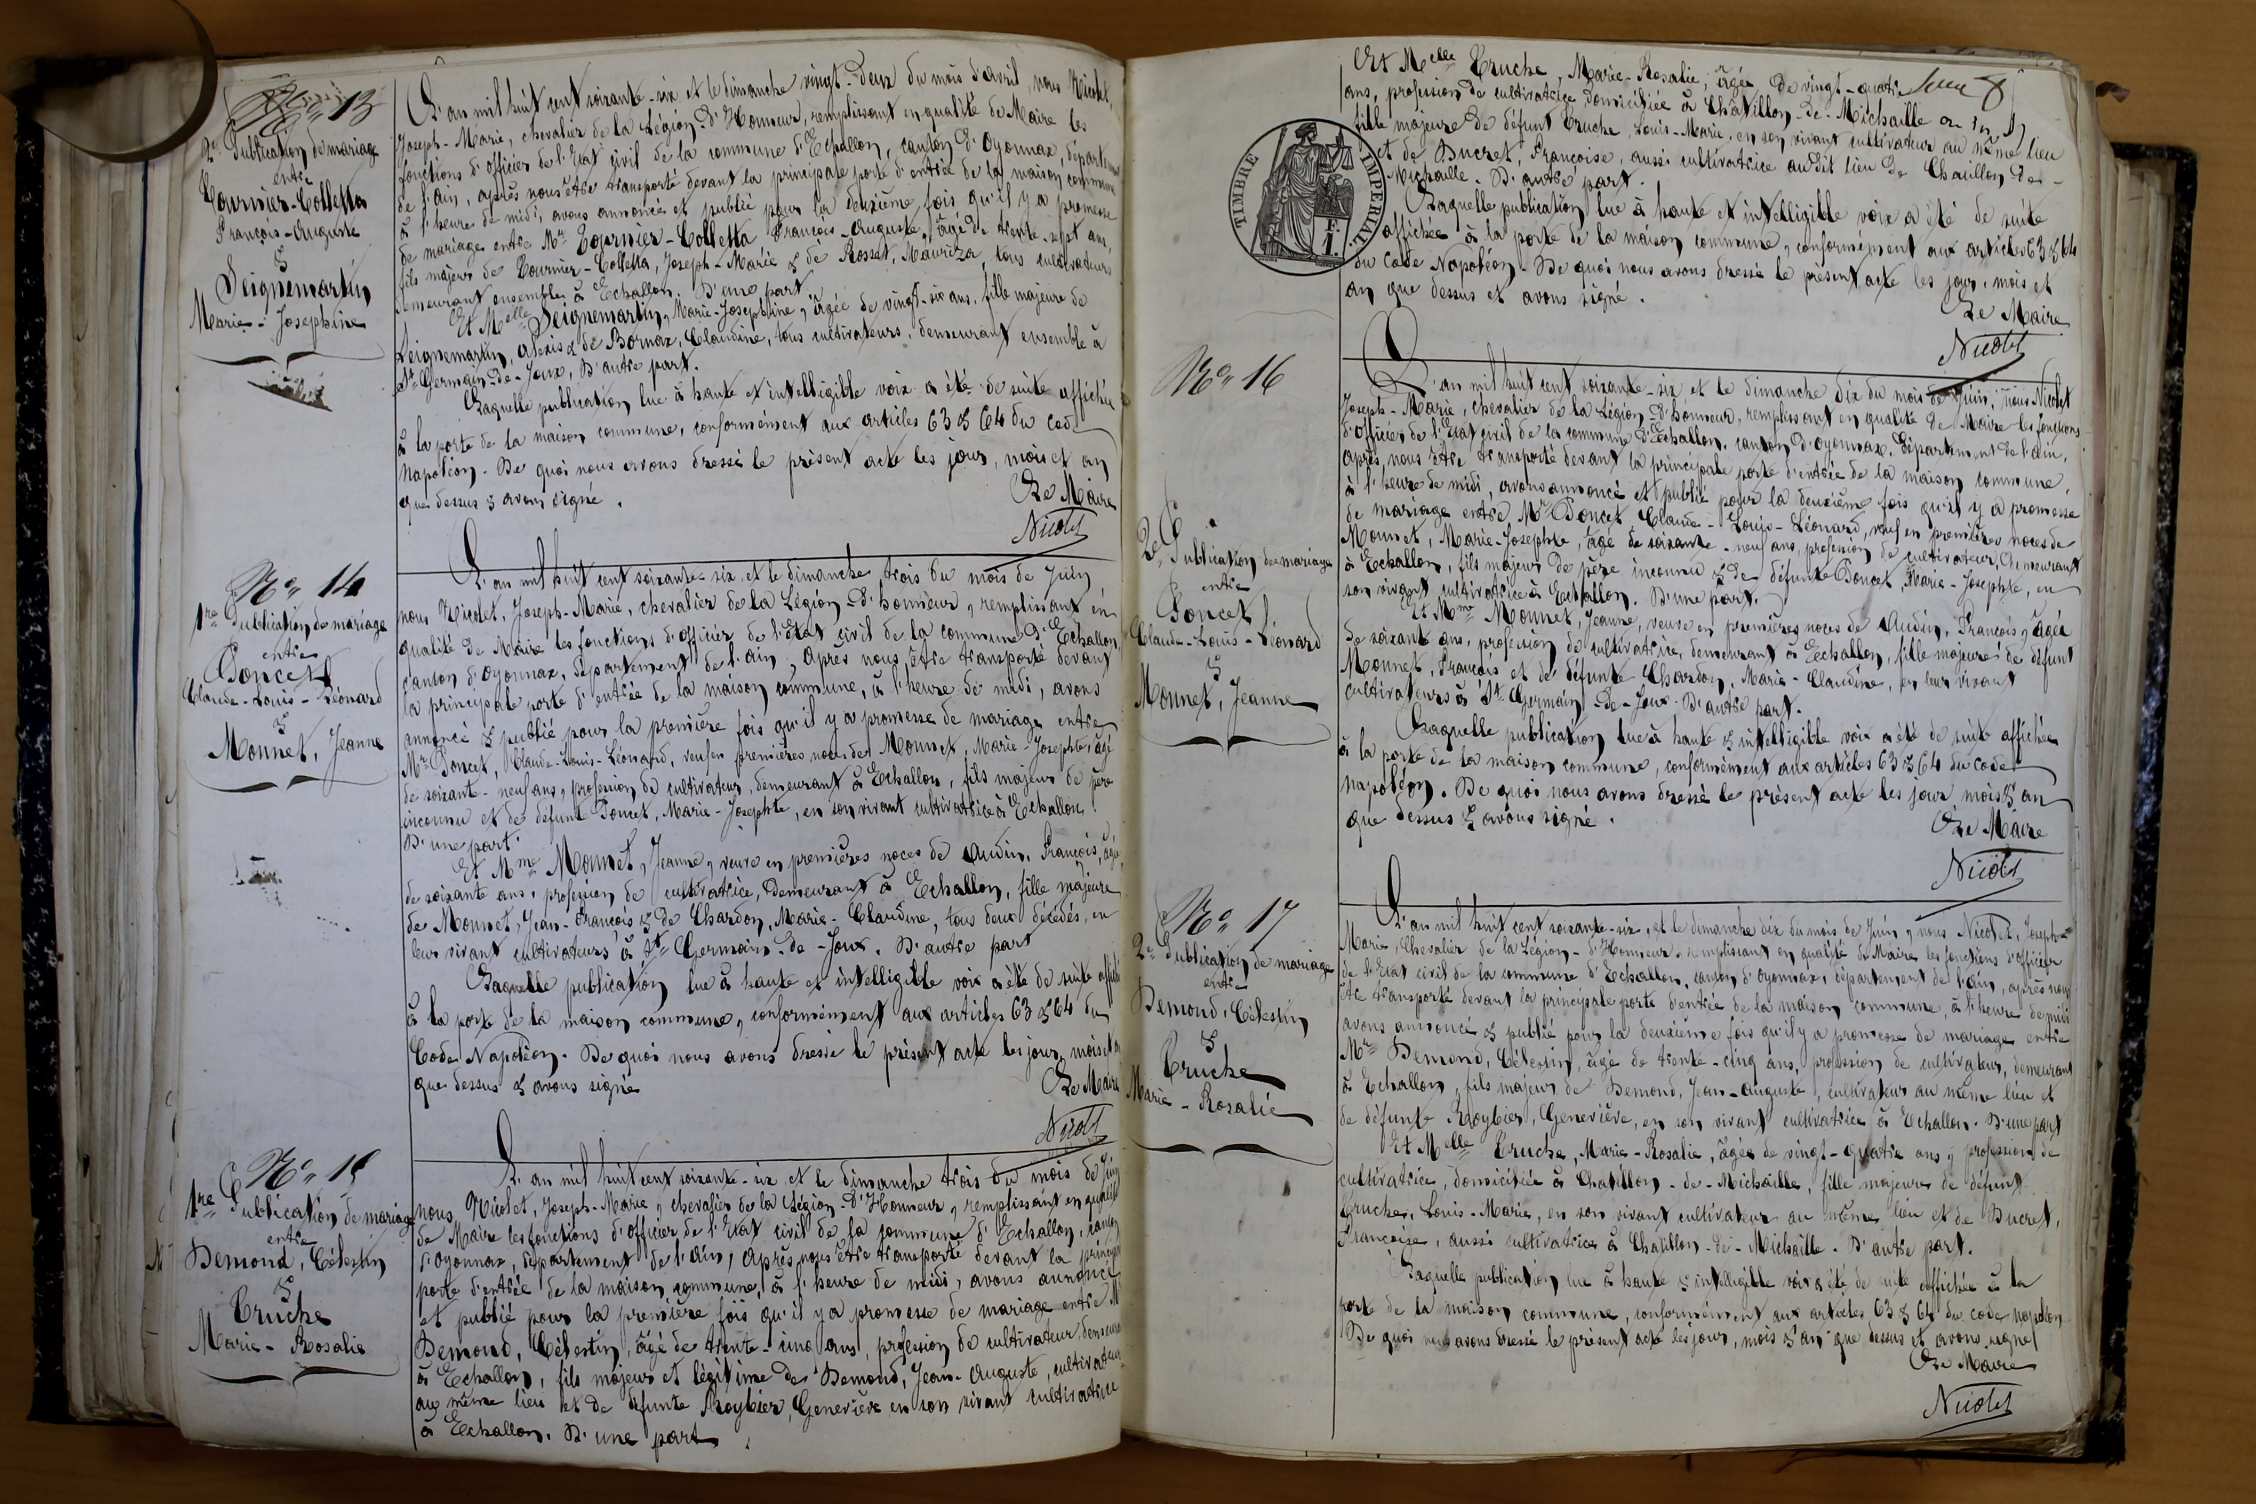 Nº 13
2e Publication de mariage
entre
Tournier-Colletta
François-Auguste
&
Seignemartin
Marie-Josephine
L'an mil huit cent soixante-six et le dimanche vingt-deux du mois d'avril, nous Nicolet,
Joseph-Marie, chevalier de la Légion-d'Honneur, remplissant en qualité de Maire les
fonctions d'officier de l'Etat civil de la commune d'Echallon, canton d'Oyonnax, département
de l'ain, après nous être transporté devant la principale porte d'entrée de la maison commune
à l'heure de midi, avons annoncé et publié pour la deuxième fois qu'il y a promesse
de mariage entre Mr Tournier-Colletta François-Auguste, âgé de trente-sept ans,
fils majeur de Tournier-Colletta, Joseph-Marie & de Rosset, Mauriza, tous cultivateurs
demeurant ensemble à Echallon. D'une part.
Et Melle Seignemartin, Marie-Josephine, âgée de vingt-six ans, fille majeure de
Seignemartin, Alexis & de Bornax, Claudine, tous cultivateurs, demeurant ensemble à
St Germain-de-Joux, D'autre part.
Laquelle publication lue à haute et intelligible voix a été de suite affichée
à la porte de la maison commune, conformément aux articles 63 & 64 du Code
Napoléon. De quoi nous avons dressé le présent acte les jour, mois et an
que dessus & avons signé.
Le Maire
Nicolet
Nº 14
1re Publication de mariage
entre
Poncet
Claude-Louis-Léonard
&
Monnet, Jeanne
L'an mil huit cent soixante-six et le dimanche trois du mois de Juin
nous Nicolet, Joseph-Marie, chevalier de la Légion-d'honneur, remplissant en
qualité de Maire les fonctions d'officier de l'Etat civil de la commune d'Echallon,
canton d'Oyonnax, département de l'ain, après nous être transporté devant
la principale porte d'entrée de la maison commune, à l'heure de midi, avons
annoncé & publié pour la première fois qu'il y a promesse de mariage entre
Mr Poncet, Claude-Louis-Léonard, veuf en premières noces de Monnet, Marie-Josephte, âgé
de soixante-neuf ans, profession de cultivateur, demeurant à Echallon, fils majeur de père
inconnu et de défunte Poncet, Marie-Josephte, en son vivant cultivatrice à Echallon.
D'une part.
Et Mme Monnet, Jeanne, veuve en premières noces de Audin, François, âgée
de soixante ans, profession de cultivatrice, demeurant à Echallon, fille majeure
de Monnet, Jean-François & de Chardon, Marie-Claudine, tous deux décédés, en
leur vivant cultivateurs à St Germain-de-Joux. D'autre part
Laquelle publication lue à haute et intelligible voix a été de suite affichée
à la porte de la maison commune, conformément aux articles 63 & 64 du
Code Napoléon. De quoi nous avons dressé le présent acte les jour, mois et an
que dessus & avons signé
Le Maire
Nicolet
Nº 15
1re Publication de mariage
entre
Demond, Célestin
&
Truche
Marie-Rosalie
L'an mil huit cent soixante-six et le dimanche trois du mois de Juin
nous, Nicolet, Joseph-Marie, chevalier de la Légion-d'Honneur, remplissant en qualité
de Maire les fonctions d'officier de l'Etat civil de la commune d'Echallon, canton
d'Oyonnax, département de l'ain, après nous être transporté devant la principale
porte d'entrée de la maison commune, à l'heure de midi, avons annoncé
et publié pour la première fois qu'il y a promesse de mariage entre Mr
Demond, Célestin, âgé de trente-cinq ans, profession de cultivateur, demeurant
à Echallon, fils majeur et légitime de Demond, Jean-Auguste, cultivateur
au même lieu et de défunte Moybier, Geneviève en son vivant cultivatrice
à Echallon. D'une part.
Et Melle Truche, Marie-Rosalie, âgée de vingt-quatre
ans, profession de cultivatrice, domiciliée à Châtillon-de-Michaille
fille majeure de défunt Truche, Louis-Marie, en son vivant cultivateur au même lieu
et de Ducret, Françoise, aussi cultivatrice audit lieu de Chatillon de-
Michaille. D'autre part.
Laquelle publication lue à haute et intelligible voix a été de suite
affichée à la porte de la maison commune, conformément aux articles 63 & 64
du Code Napoléon. De quoi nous avons dressé le présent acte les jour, mois et
an que dessus et avons signé.
Le Maire
Nicolet
TIMBRE IMPERIAL
1 F.
Nº 16
2e Publication de mariage
entre
Poncet
Claude-Louis-Léonard
&
Monnet, Jeanne
L'an mil huit cent soixante-six et le dimanche dix du mois de Juin, nous Nicolet
Joseph-Marie, chevalier de la Légion-d'honneur, remplissant en qualité de Maire les fonctions
d'officier de l'Etat civil de la commune d'Echallon, canton d'Oyonnax, département de l'ain,
après nous être transporté devant la principale porte d'entrée de la maison commune,
à l'heure de midi, avons annoncé et publié pour la deuxième fois qu'il y a promesse
de mariage entre Mr Poncet Claude-Louis-Léonard, veuf en premières noces de
Monnet, Marie-Josephte, âgé de soixante-neuf ans, profession de cultivateur, demeurant
à Echallon, fils majeur de père inconnu & de défunte Poncet, Marie-Josephte, en
son vivant cultivatrice à Echallon. D'une part.
Et Mme Monnet, Jeanne, veuve en premières noces de Audin, François, âgée
de soixante ans, profession de cultivatrice, demeurant à Echallon, fille majeure de défunt
Monnet, François et de défunte Chardon, Marie-Claudine, en leur vivant
cultivateurs à St Germain-de-Joux. D'autre part.
Laquelle publication lue à haute & intelligible voix a été de suite affichée
à la porte de la maison commune, conformément aux articles 63 & 64 du Code
napoléon. De quoi nous avons dressé le présent acte les jour, mois & an
que dessus & avons signé.
Le Maire
Nicolet
Nº 17
2e Publication de mariage
entre
Demond, Célestin
&
Truche
Marie-Rosalie
L'an mil huit cent soixante-six, et le dimanche dix du mois de Juin, nous Nicolet, Joseph-
Marie, Chevalier de la Légion-d'Honneur, remplissant en qualité de Maire les fonctions d'officier
de l'Etat civil de la commune d'Echallon, canton d'Oyonnax, département de l'ain, après nous
être transporté devant la principale porte d'entrée de la maison commune, à l'heure de midi
avons annoncé & publié pour la deuxième fois qu'il y a promesse de mariage entre
Mr Demond, Célestin, âgé de trente-cinq ans, profession de cultivateur, demeurant
à Echallon, fils majeur de Demond, Jean-Auguste, cultivateur au même lieu et
de défunte Moybier, Geneviève, en son vivant cultivatrice à Echallon. D'une part
Et Melle Truche, Marie-Rosalie, âgée de vingt-quatre ans, profession de
cultivatrice, domiciliée à Chatillon-de-Michaille, fille majeure de défunt
Truche, Louis-Marie, en son vivant cultivateur au même lieu et de Ducret,
Françoise, aussi cultivatrice à Chatillon-de-Michaille. D'autre part.
Laquelle publication lue à haute & intelligible voix a été de suite affichée à la
porte de la maison commune, conformément aux articles 63 & 64 du code napoléon
De quoi nous avons dressé le présent acte les jour, mois & an que dessus et avons signé
Le Maire
Nicolet